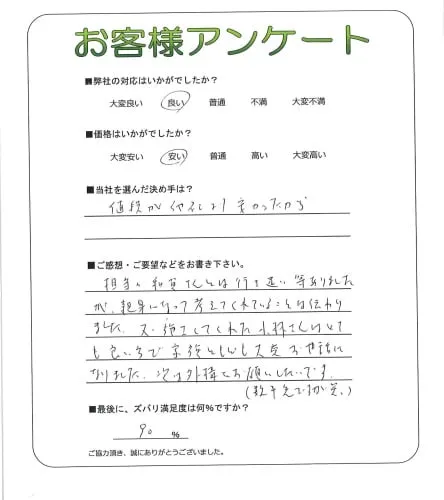 お客様アンケート
■弊社の対応はいかがでしたか？
大変良い 良い 普通 不満 大変不満
■価格はいかがでしたか？
大変安い 安い 普通 高い 大変高い
■当社を選んだ決め手は？
値段が他社より安かったから
■ご感想・ご要望などをお書き下さい。
担当の和賀さんとは行き違い等ありました
が、親身になって考えてくれていることは伝わり
ました。又、施工してくれた小林さんはとて
も良い方で家族ともども大変お世話に
なりました。次は外構でお願いしたいです。
(数千先ですが笑。)
■最後に、ズバリ満足度は何％ですか？
90 ％
ご協力頂き、誠にありがとうございました。